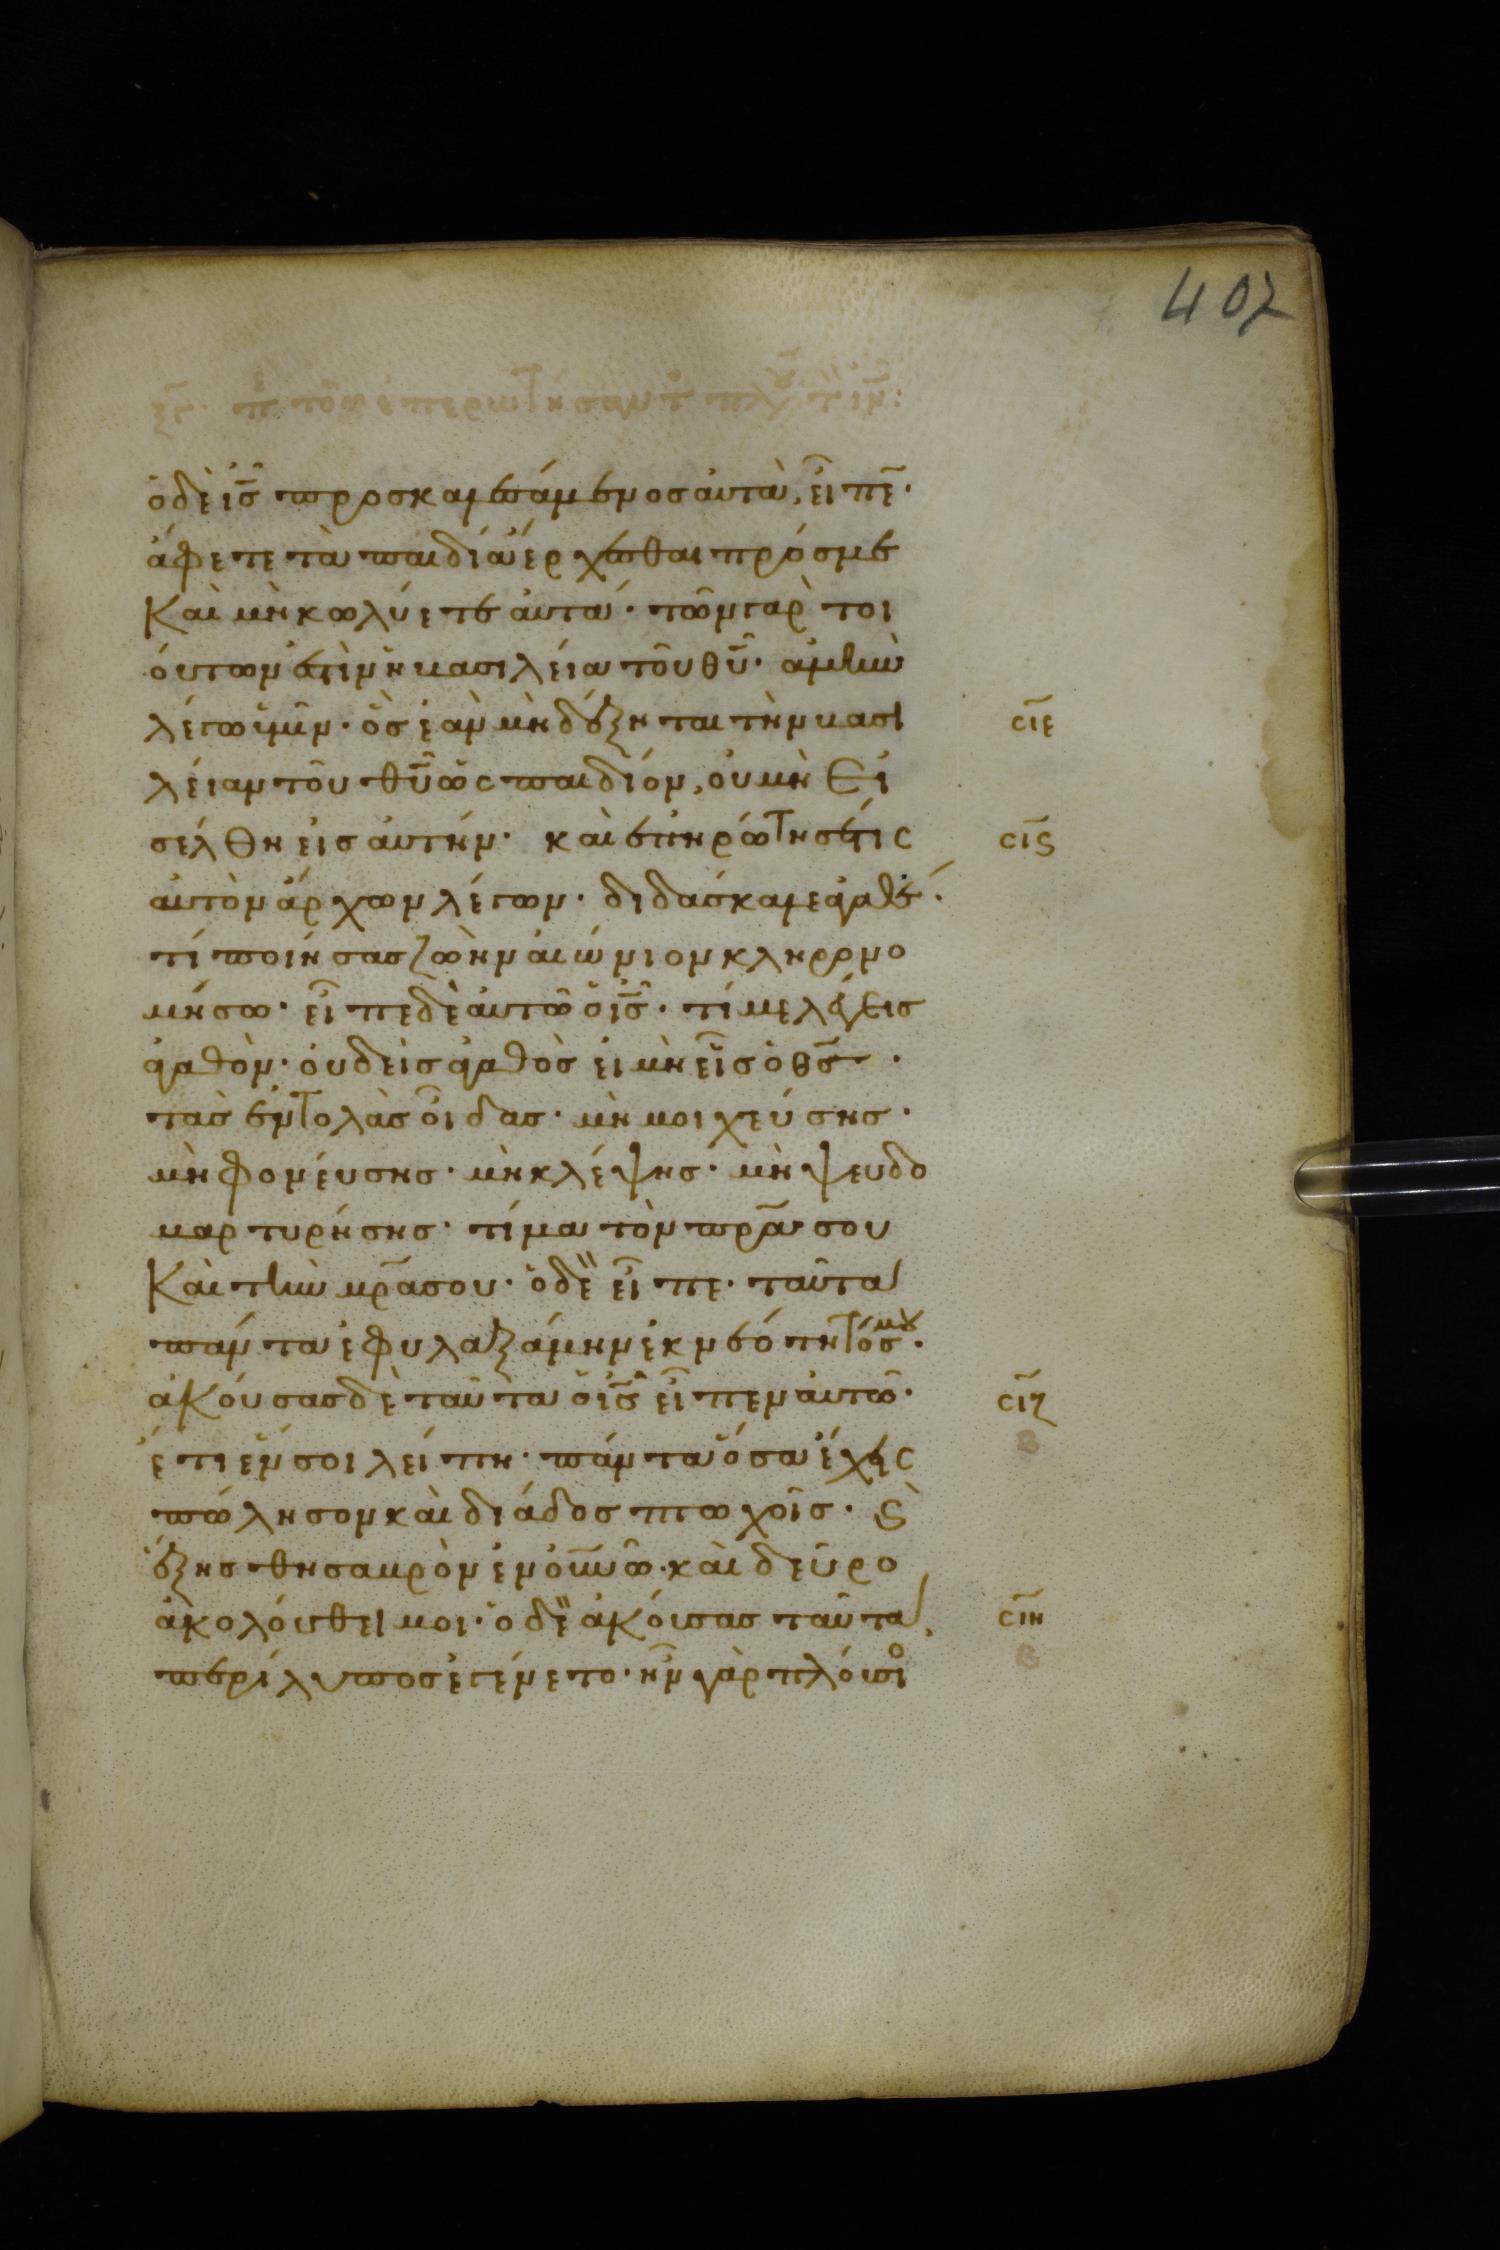 407
ὁ δὲ ις̅ προσκαλεσάμενος αὐτὰ, εἶπε̅·
ἄφετε τὰ παιδία ἔρχεσθαι πρός με
Καὶ μὴ κωλύετε αὐτά· τῶν γὰρ τοι
ούτων ἐστὶν ἡ βασιλεία τοῦ θυ̅· ἀμὴν
λέγω ὑμῖν· ὃς ἐὰν μὴ δέξηται τὴν βασι σιε̅
λείαν τοῦ θυ̅ ὡς παιδίον, οὐ μὴ εἰ
σέλθη εἰς αὐτήν· καὶ ἐπηρώτησέ τις σις̅
αὐτὸν ἄρχων λέγων· διδάσκαλε ἀγαθέ·
τί ποιήσας ζωὴν αἰώνιον κληρονο
μήσω· εἶπε δὲ αὐτῶ ὁ ις̅· τί με λέγεις
ἀγαθόν· οὐδεὶς ἀγαθὸς εἰ μὴ εἷς ὁ θς̅·
τὰς ἐντολὰς οἶδας· μὴ μοιχεύσης·
μὴ φονεύσης· μὴ κλέψης· μὴ ψευδο
μαρτυρήσης· τίμα τὸν πρ̅α σου
Καὶ τὴν μρ̅α σου· ὁ δὲ εἶπε· ταῦτα
πάντα ἐφυλαξάμην ἐκ νεότητός μου·
ἀκούσας δὲ ταῦτα ὁ ις̅ εἶπεν αὐτῶ· σιζ̅
ἔτι ἕν σοι λείπη· πάντα ὅσα ἔχεις β
πώλησον καὶ διάδος πτωχοῖς· ϗ
ἕξης θησαυρὸν ἐν οὐνῶ· καὶ δεῦρο
ἀκολούθει μοι· ὁ δὲ ἀκούσας ταῦτα, σιη̅
περίλυπος ἐγένετο· ἦν γὰρ πλούσιο β